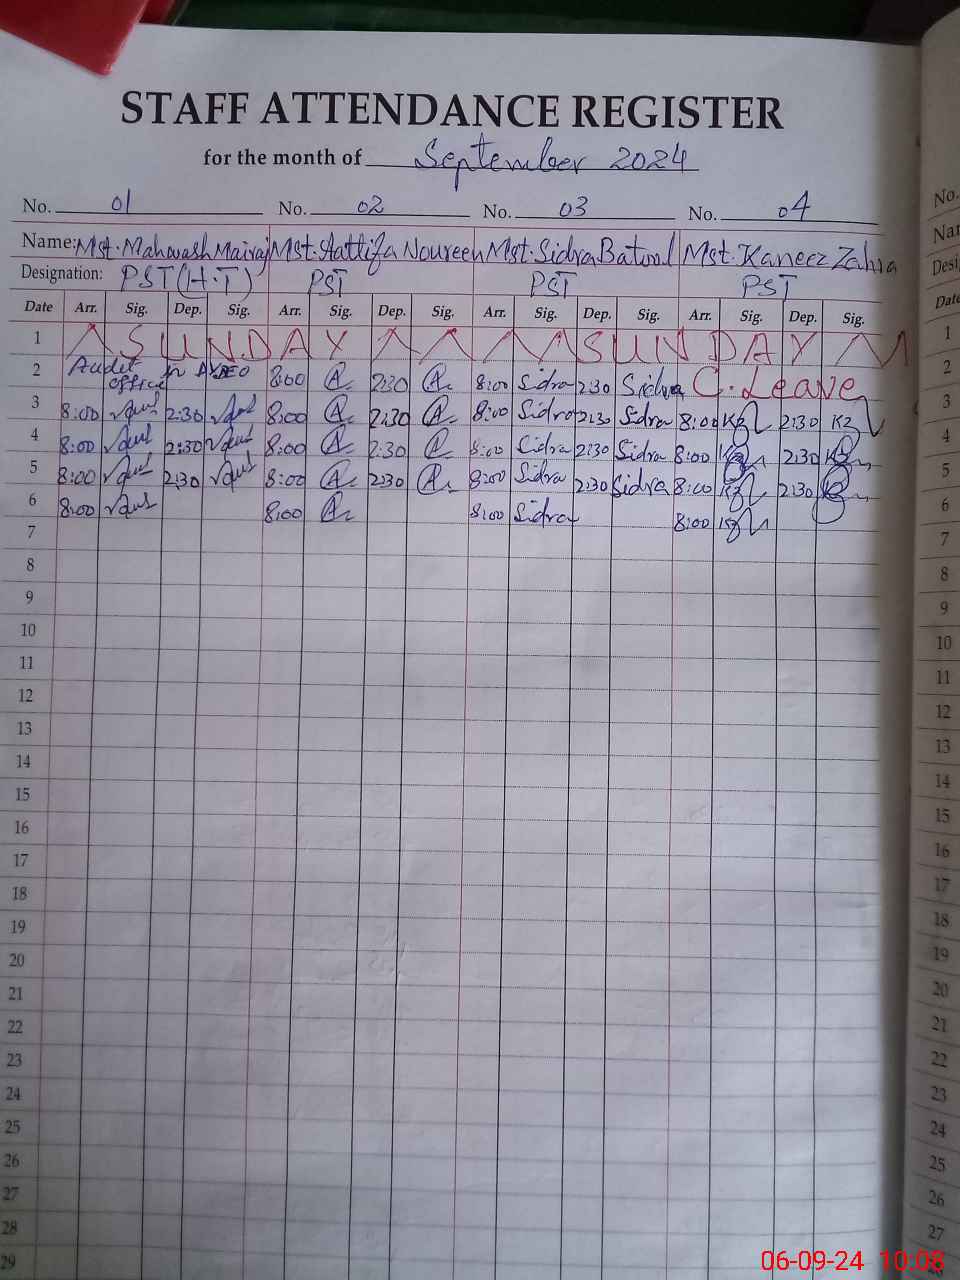 STAFF ATTENDANCE REGISTER
for the month of September 2024
No. 01 No. 02 No. 03 No. 04
Name: Mst. Mahwash Mairaj Mst. Aattifa Noureen Mst. Sidra Batool Mst. Kaneez Zahra
Designation: PST (H.T) PST PST PST
Date Arr. Sig. Dep. Sig. Arr. Sig. Dep. Sig. Arr. Sig. Dep. Sig. Arr. Sig. Dep. Sig.
1 SUNDAY SUNDAY
2 Audit office 8:00 2:30 8:00 Sidra 2:30 Sidra C. Leave
3 8:00 2:30 8:00 2:30 8:00 Sidra 2:30 Sidra 8:00 KZ 2:30 KZ
4 8:00 2:30 8:00 2:30 8:00 Sidra 2:30 Sidra 8:00 KZ 2:30 KZ
5 8:00 2:30 8:00 2:30 8:00 Sidra 2:30 Sidra 8:00 KZ 2:30
6 8:00 8:00 8:00 Sidra 8:00 KZ
7
8
9
10
11
12
13
14
15
16
17
18
19
20
21
22
23
24
25
26
27
28
29
No.
Date
1
2
3
4
5
6
7
8
9
10
11
12
13
14
15
16
17
18
19
20
21
22
23
24
25
26
27
06-09-24 10:08